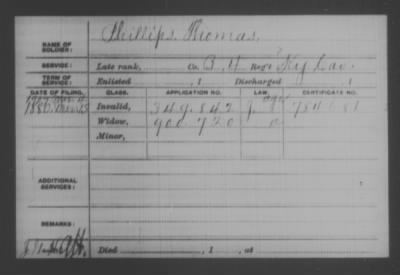 Phillips, Thomas,
NAME OF SOLDIER:
SERVICE: Late rank, Co. Reg't Ky Cav.
TERM OF SERVICE: Enlisted , 1 Discharged , 1
DATE OF FILING. CLASS. APPLICATION NO. LAW. CERTIFICATE NO.
Invalid, 349.842
Widow, 900.720
Minor,
ADDITIONAL SERVICES:
REMARKS:
Died , 1 , at